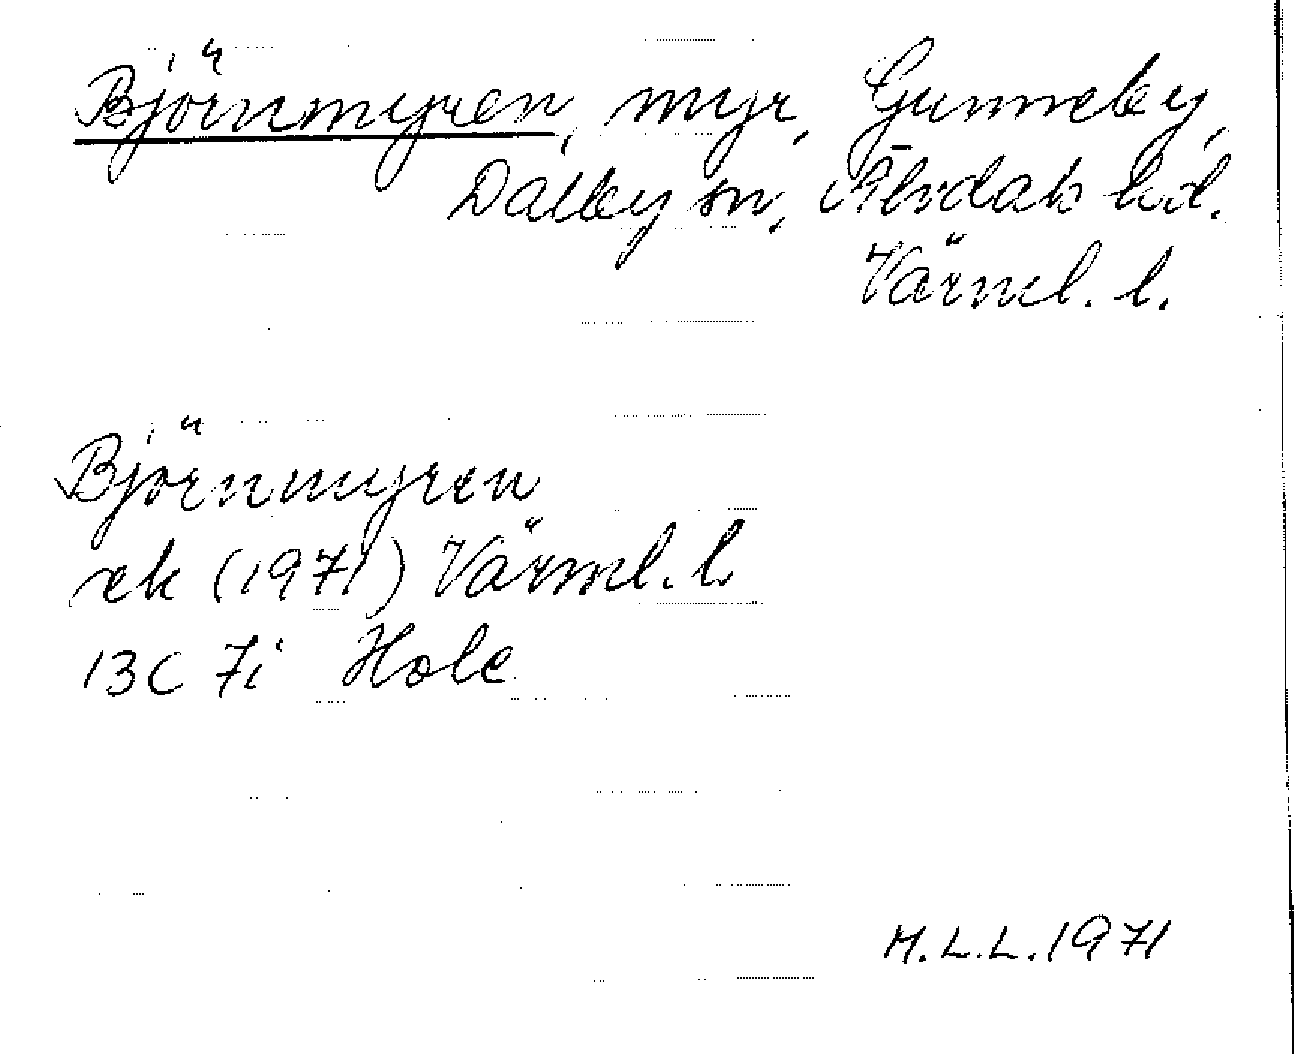 Björnmyren, myr, Gunneby,
Dalby sn, Älvdals hd.
Värml. l.
Björnmyren
ek (1971) Värml. l.
13C 7i Hole
M.L.L. 1971